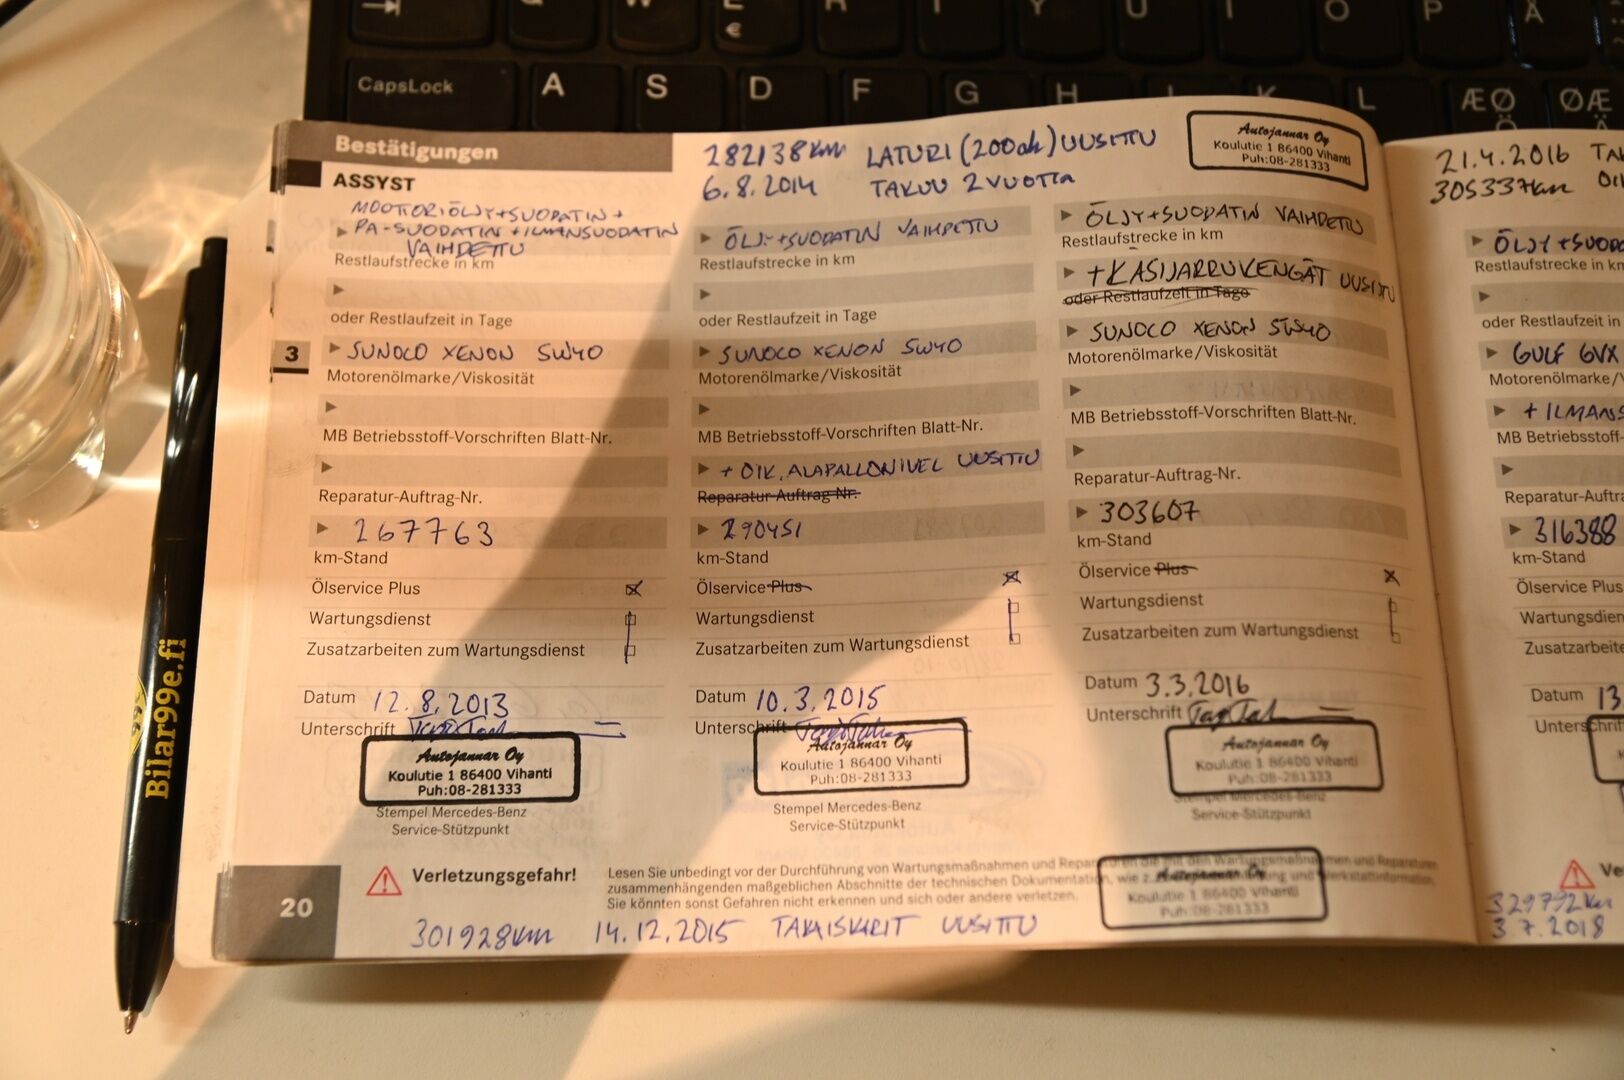 Q W E R T Y U I O P Å
€
CapsLock A S D F G H J K L ÆØ ØÆ
Ö Ä
Bestätigungen
ASSYST
282138km LATURI (200ah) UUSITTU
6.8.2014 TAKUU 2 VUOTTA
Autojannar Oy
Koulutie 1 86400 Vihanti
Puh:08-281333
3
MOOTTORIÖLJY+SUODATIN +
PA-SUODATIN + ILMANSUODATIN
VAIHDETTU
Restlaufstrecke in km
oder Restlaufzeit in Tage
SUNOCO XENON 5W40
Motorenölmarke/Viskosität
MB Betriebsstoff-Vorschriften Blatt-Nr.
Reparatur-Auftrag-Nr.
267763
km-Stand
Ölservice Plus
Wartungsdienst
Zusatzarbeiten zum Wartungsdienst
Datum 12.8.2013
Unterschrift
Autojannar Oy
Koulutie 1 86400 Vihanti
Puh:08-281333
Stempel Mercedes-Benz
Service-Stützpunkt
ÖLJY+SUODATIN VAIHDETTU
Restlaufstrecke in km
oder Restlaufzeit in Tage
SUNOCO XENON 5W40
Motorenölmarke/Viskosität
MB Betriebsstoff-Vorschriften Blatt-Nr.
+ OIK. ALAPALLONIVEL UUSITTU
Reparatur-Auftrag-Nr.
290451
km-Stand
Ölservice Plus
Wartungsdienst
Zusatzarbeiten zum Wartungsdienst
Datum 10.3.2015
Unterschrift
Autojannar Oy
Koulutie 1 86400 Vihanti
Puh:08-281333
Stempel Mercedes-Benz
Service-Stützpunkt
ÖLJY+SUODATIN VAIHDETTU
Restlaufstrecke in km
+KÄSIJARRUKENGÄT UUSITTU
oder Restlaufzeit in Tage
SUNOCO XENON 5W40
Motorenölmarke/Viskosität
MB Betriebsstoff-Vorschriften Blatt-Nr.
Reparatur-Auftrag-Nr.
303607
km-Stand
Ölservice Plus
Wartungsdienst
Zusatzarbeiten zum Wartungsdienst
Datum 3.3.2016
Unterschrift
Autojannar Oy
Koulutie 1 86400 Vihanti
Puh:08-281333
Stempel Mercedes-Benz
Service-Stützpunkt
20
Verletzungsgefahr!
Lesen Sie unbedingt vor der Durchführung von Wartungsmaßnahmen und Reparaturen die mit den Wartungsmaßnahmen und Reparaturen
zusammenhängenden maßgeblichen Abschnitte der technischen Dokumentation, wie z. und Werkstattinformation.
Sie könnten sonst Gefahren nicht erkennen und sich oder andere verletzen.
Autojannar Oy
Koulutie 1 86400 Vihanti
Puh:08-281333
301928km 14.12.2015 TAKAISKARIT UUSITTU
21.4.2016 TAK
305337km OI
ÖLJY+SUODA
Restlaufstrecke in
oder Restlaufzeit in
GULF GVX
Motorenölmarke/V
+ ILMANS
MB Betriebsstoff-
Reparatur-Auftra
316388
km-Stand
Ölservice Plus
Wartungsdien
Zusatzarbeite
Datum 13.
Unterschrift
Ve
329792km
3.7.2018
Bilar99e.fi